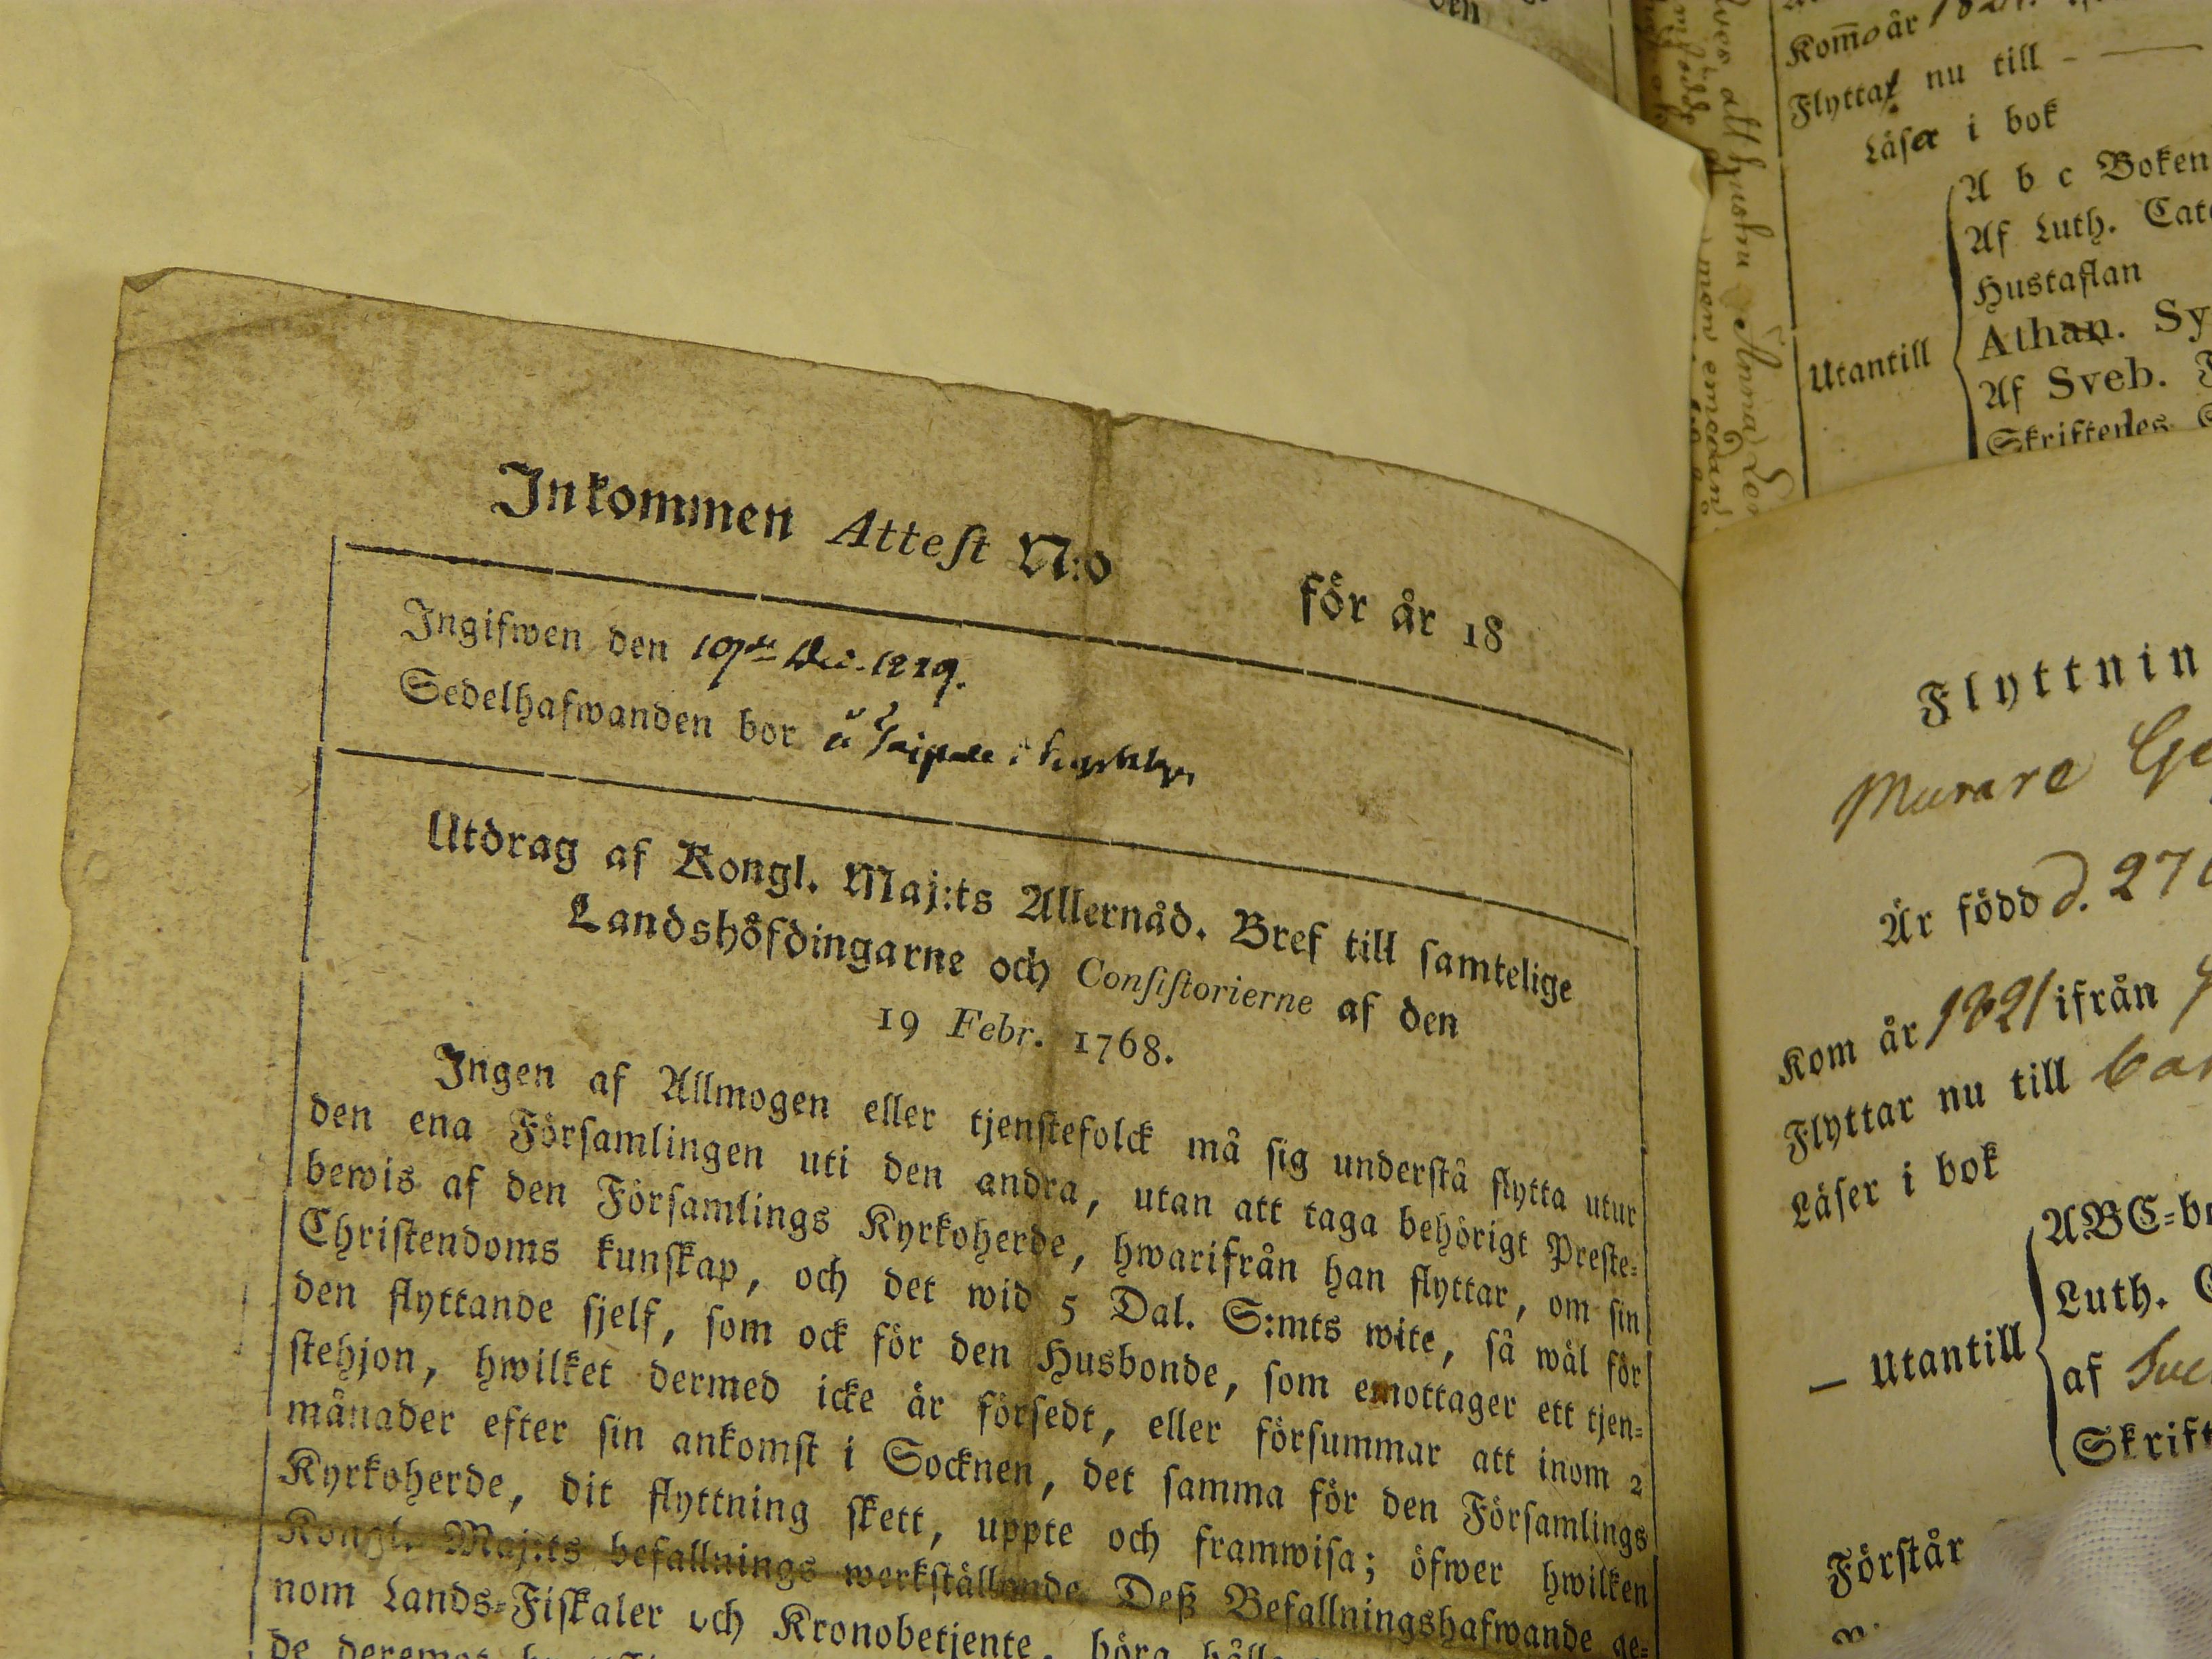 Inkommen Attest N:o för år 18
Ingifwen den 19de Dec. 1829.
Sedelhafwanden bor å
Utdrag af Kongl. Maj:ts Allernåd. Bref till samtelige
Landshöfdingarne och Consistorierne af den
19 Febr. 1768.
Ingen af Allmogen eller tjenstefolck må sig understå flytta utur
den ena Församlingen uti den andra, utan att taga behörigt Preste-
bewis af den Församlings Kyrkoherde, hwarifrån han flyttar, om sin
Christendoms kunskap, och det wid 5 Dal. S:mts wite, så wäl för
den flyttande sjelf, som ock för den Husbonde, som emottager ett tjen-
stehjon, hwilket dermed icke är försedt, eller försummar att inom 2
månader efter sin ankomst i Socknen, det samma för den Församlings
Kyrkoherde, dit flyttning skett, uppte och framwisa; öfwer hwilken
Kongl. Maj:ts befallnings werkställande Deß Befallningshafwande ge-
nom Lands-Fiskaler och Kronobetjente, böra hålla
de deremot
Kommo år
Flyttar nu till -
Läser i bok
Utantill
A b c Boken
Af Luth. Cat
Hustaflan
Athan. Sy
Af Sveb.
Skriftenes
hustru Anna
Flyttnin
Murare Ge
Är född d. 27
Kom år 1821 ifrån
Flyttar nu till
Läser i bok
— Utantill
ABC-b
Luth.
af Sve
Skrift
Förstår